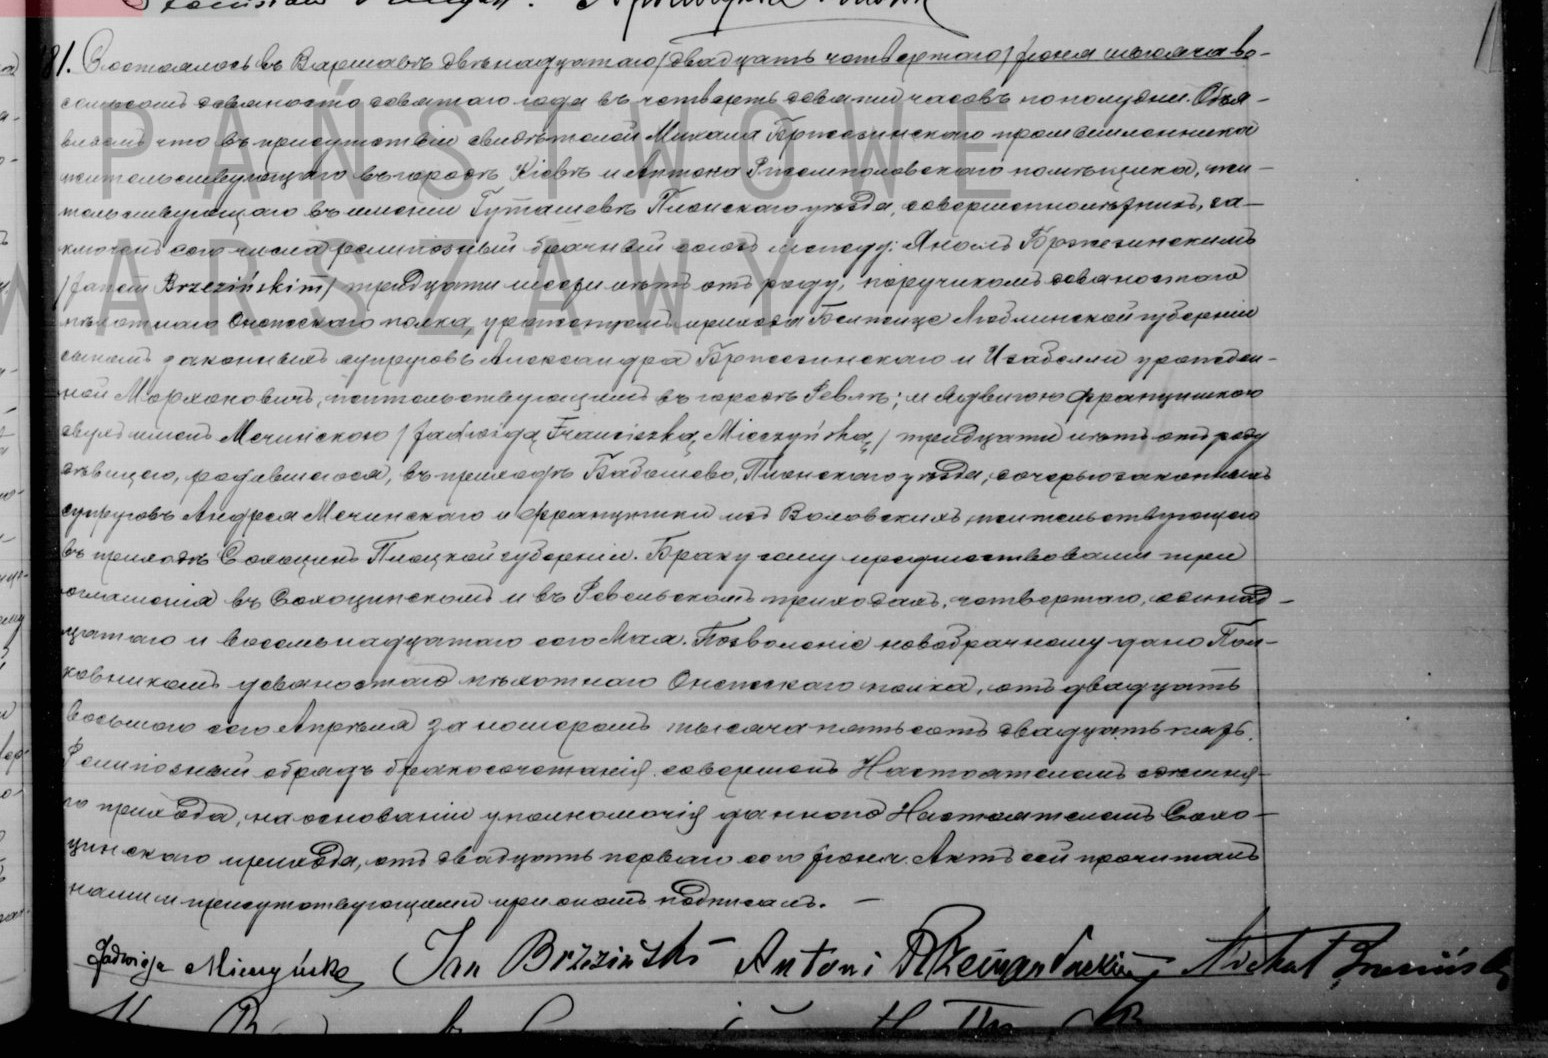 81. Состоялось въ Варшавѣ двѣнадцатаго /двадцать четвертаго/ Іюня тысяча во-
семьсотъ девяносто девятаго года въ четверть девятаго часовъ пополудни. Объя-
вляемъ что въ присутствіи свидѣтелей Михаила Бржезинскаго промышленника
жительствующаго въ городѣ Кіевѣ и Антона помѣщика, жи-
тельствующаго въ имѣніи Плонскаго уѣзда, совершеннолѣтнихъ, за-
ключенъ сего числа религіозный брачный союзъ между: Яномъ Бржезинскимъ
/Janem Brzezińskim/ тридцати лѣтъ отъ роду, поручикомъ девяностаго
пѣхотнаго Онежскаго полка, уроженцемъ прихода Белжице Люблинской губерніи
сыномъ законныхъ супруговъ Александра Бржезинскаго и Изабеллы урожден-
ной Марханович, жительствующимъ въ городѣ Ревлѣ; и Ядвигою Францишкою
двухъ именъ Мечинскою /Jadwigą Franciszką Mieczyńską/ тридцати лѣтъ отъ роду
дѣвицею, родившеюся, въ приходѣ Бабошево, Плонскаго уѣзда, дочерью законныхъ
супруговъ Андрея Мечинскаго и Францишки изъ Воловскихъ, жительствующею
въ приходѣ Сохоцинъ Плоцкой губерніи. Браку сему предшествовали три
оглашенія въ Сохоцинскомъ и въ Ревельскомъ приходахъ, четвертаго, одиннад-
цатаго и восемьнадцатаго сего Мая. Позволеніе новобрачному дано Пол-
ковникомъ девяностаго пѣхотнаго Онежскаго полка, отъ двадцать
восьмаго сего Апрѣля за номеромъ тысяча пятьсотъ двадцать пять.
Религіозный обрядъ бракосочетанія совершенъ Настоятелемъ здѣшня-
го прихода, на основаніи уполномочія даннаго Настоятелемъ Сохо-
цинскаго прихода, отъ двадцать перваго сего Іюня. Актъ сей прочитанъ
нами и присутствующими при ономъ подписанъ. —
Jadwiga Mieczyńska Jan Brzeziński Antoni Michał Brzeziński
PAŃSTWOWE
WARSZAWY